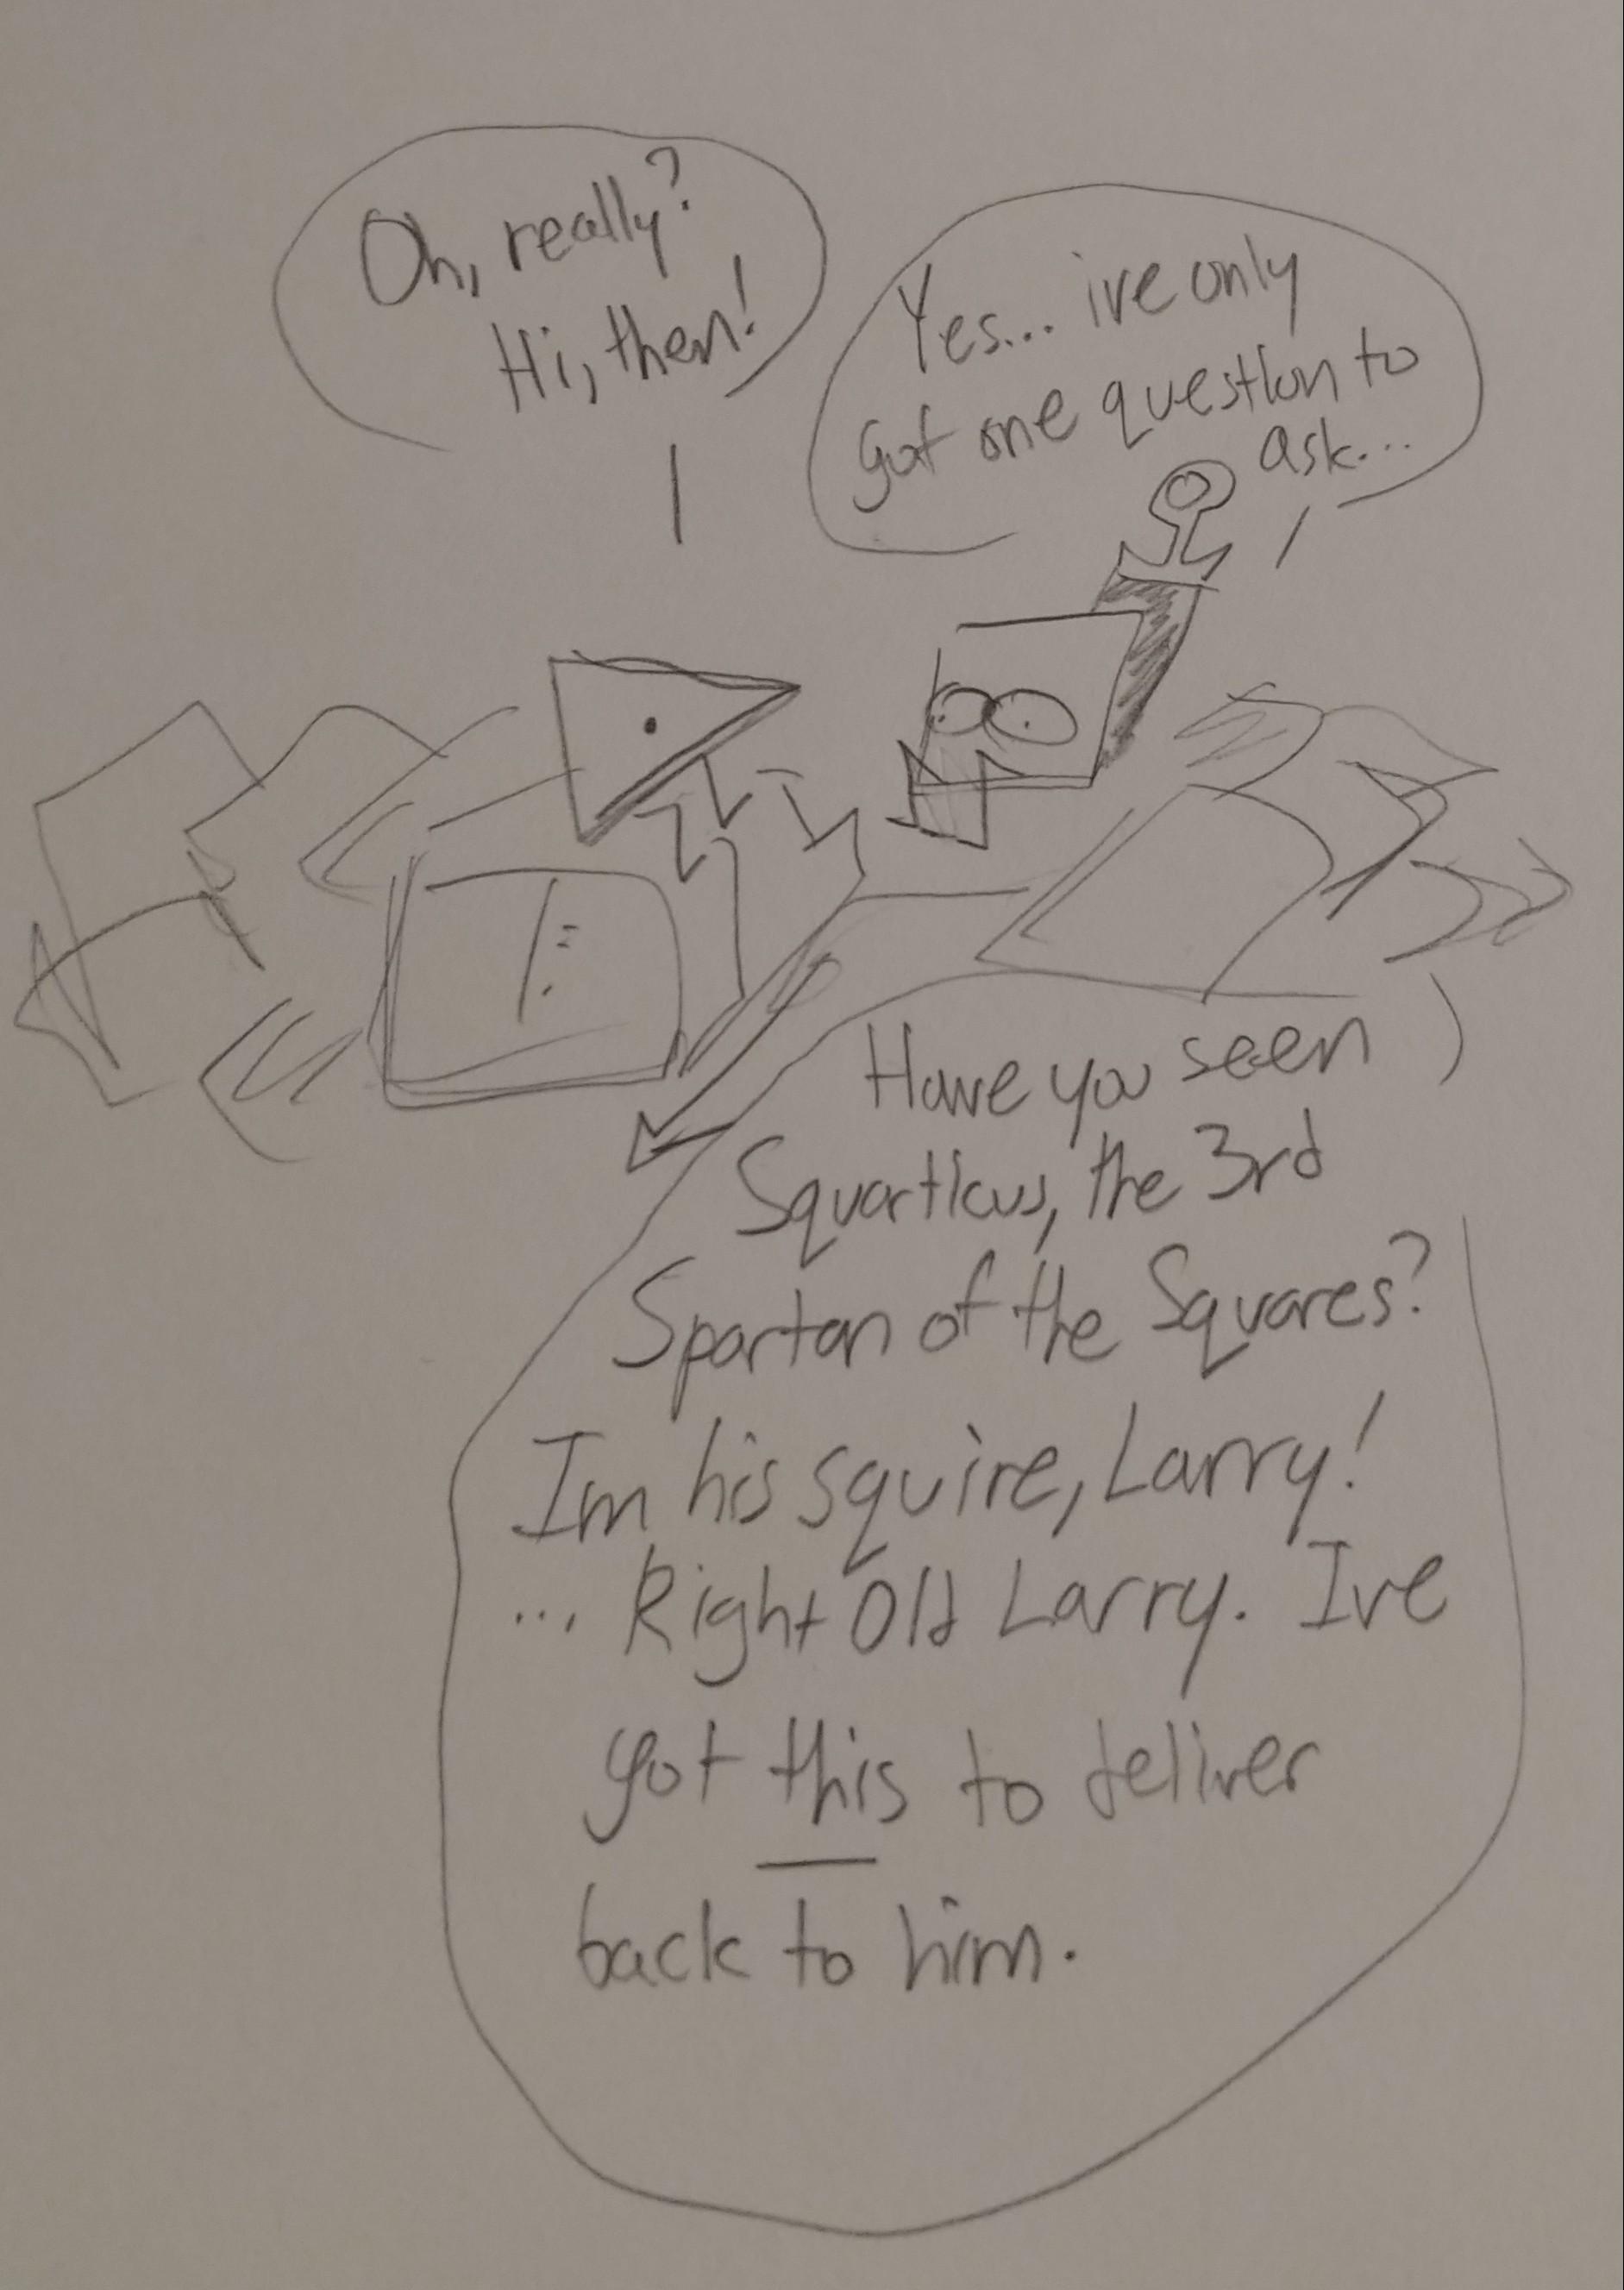 Oh, really?
Hi, then!
Yes... ive only
got one question to
ask...
Have you seen
Squarticus, the 3rd
Spartan of the Squares?
Im his squire, Larry!
... Right Old Larry. Ive
got this to deliver
back to him.